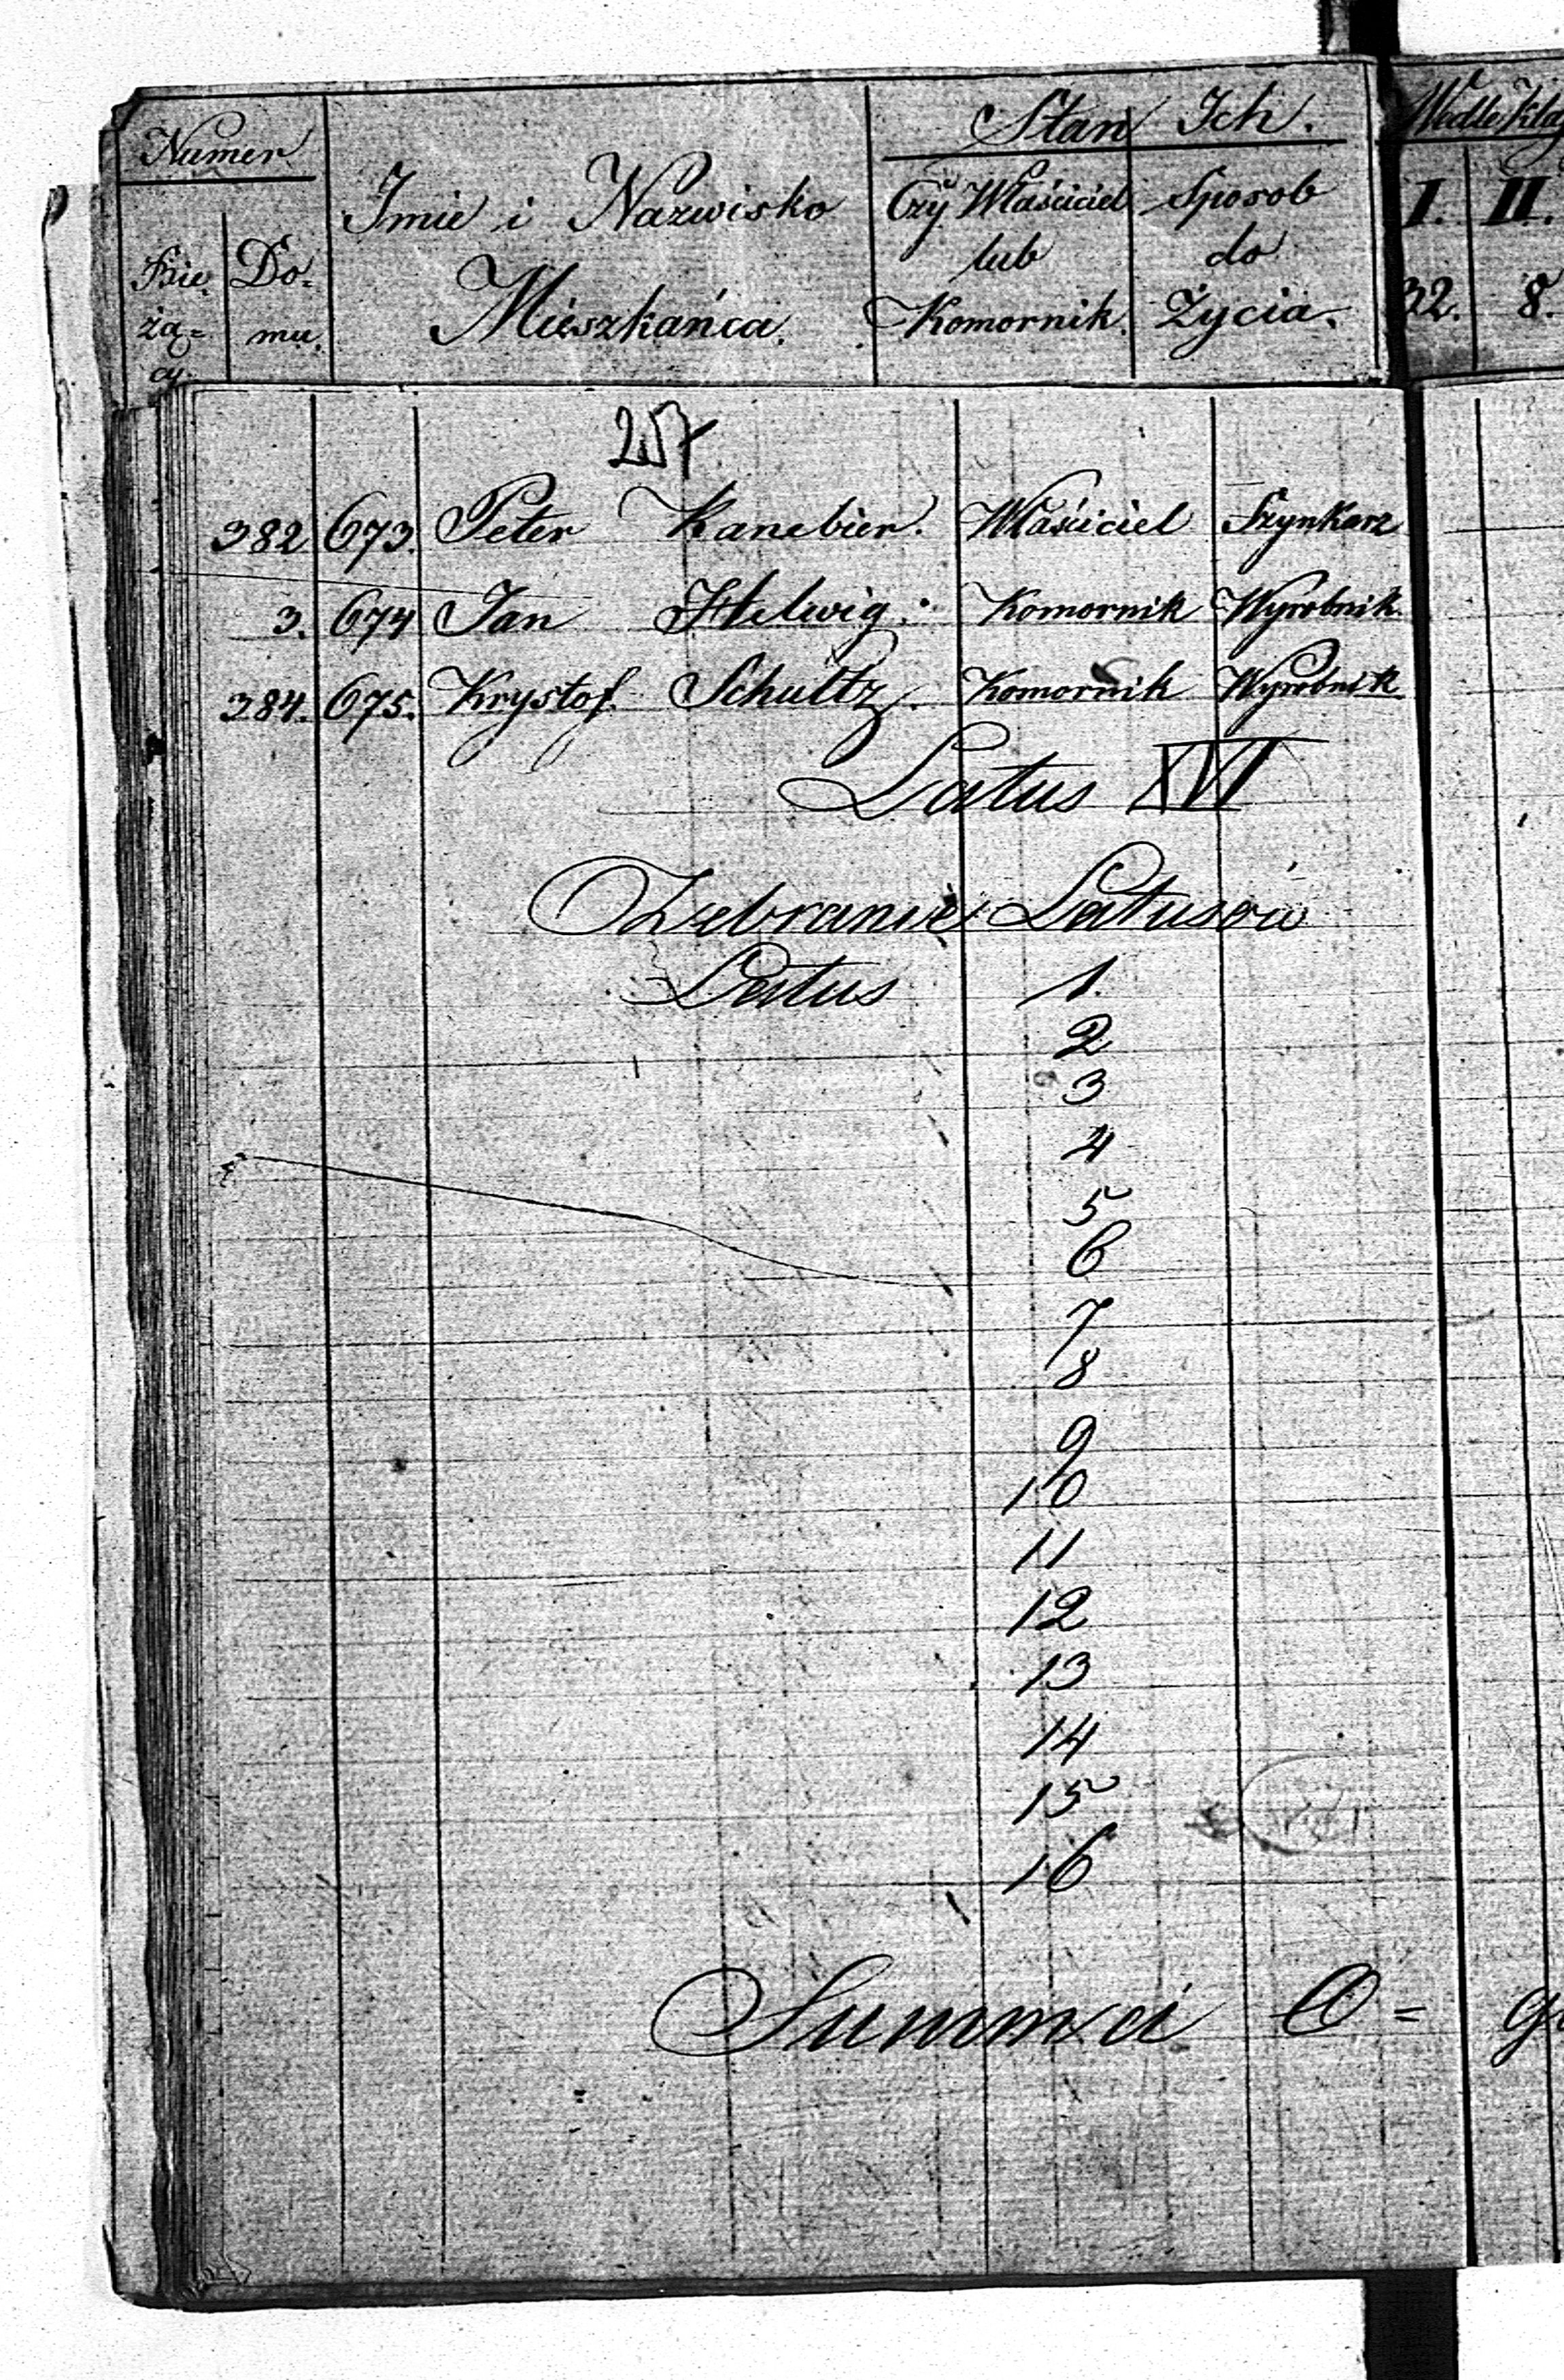 Numer
Bie=
żą=
cy.
Do=
mu.
Imie i Nazwisko
Mieszkańca.
Stan Ich.
Czy Właściciel
lub
Komornik.
Sposob
do
Życia.
Wedle Kla
I. II.
32. 8.
257
382 673. Peter Kanebier. Właściciel Szynkarz
3. 674 Jan Helwig. Komornik Wyrobnik.
384. 675. Krystof Schultz. Komornik Wyrobnik
Latus XVI
Zebranie Latusów
Latus 1.
2
3
4
5
6
7
8
9
10
11
12
13
14
15
16
Summa